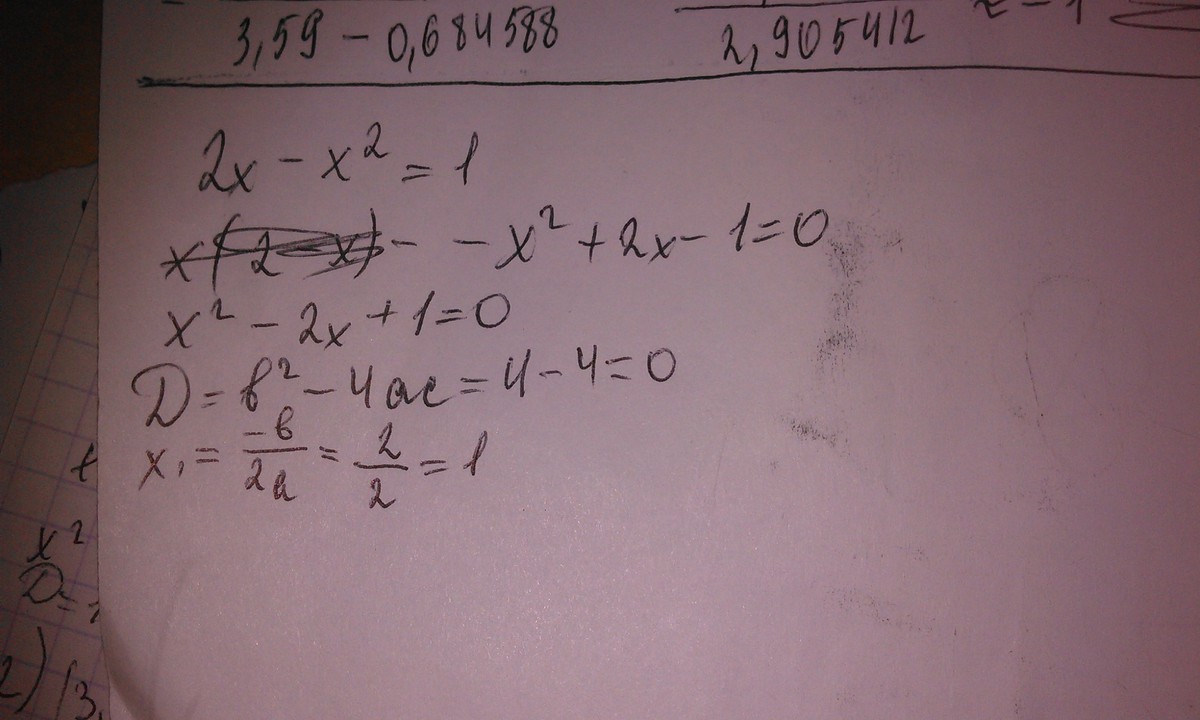 3,59 - 0,684588
2,905412
2x - x² = 1
x(2 - x) - - x² + 2x - 1 = 0
x² - 2x + 1 = 0
D = b² - 4ac = 4 - 4 = 0
x₁ = -b/2a = 2/2 = 1
x²
D =
2) (3,